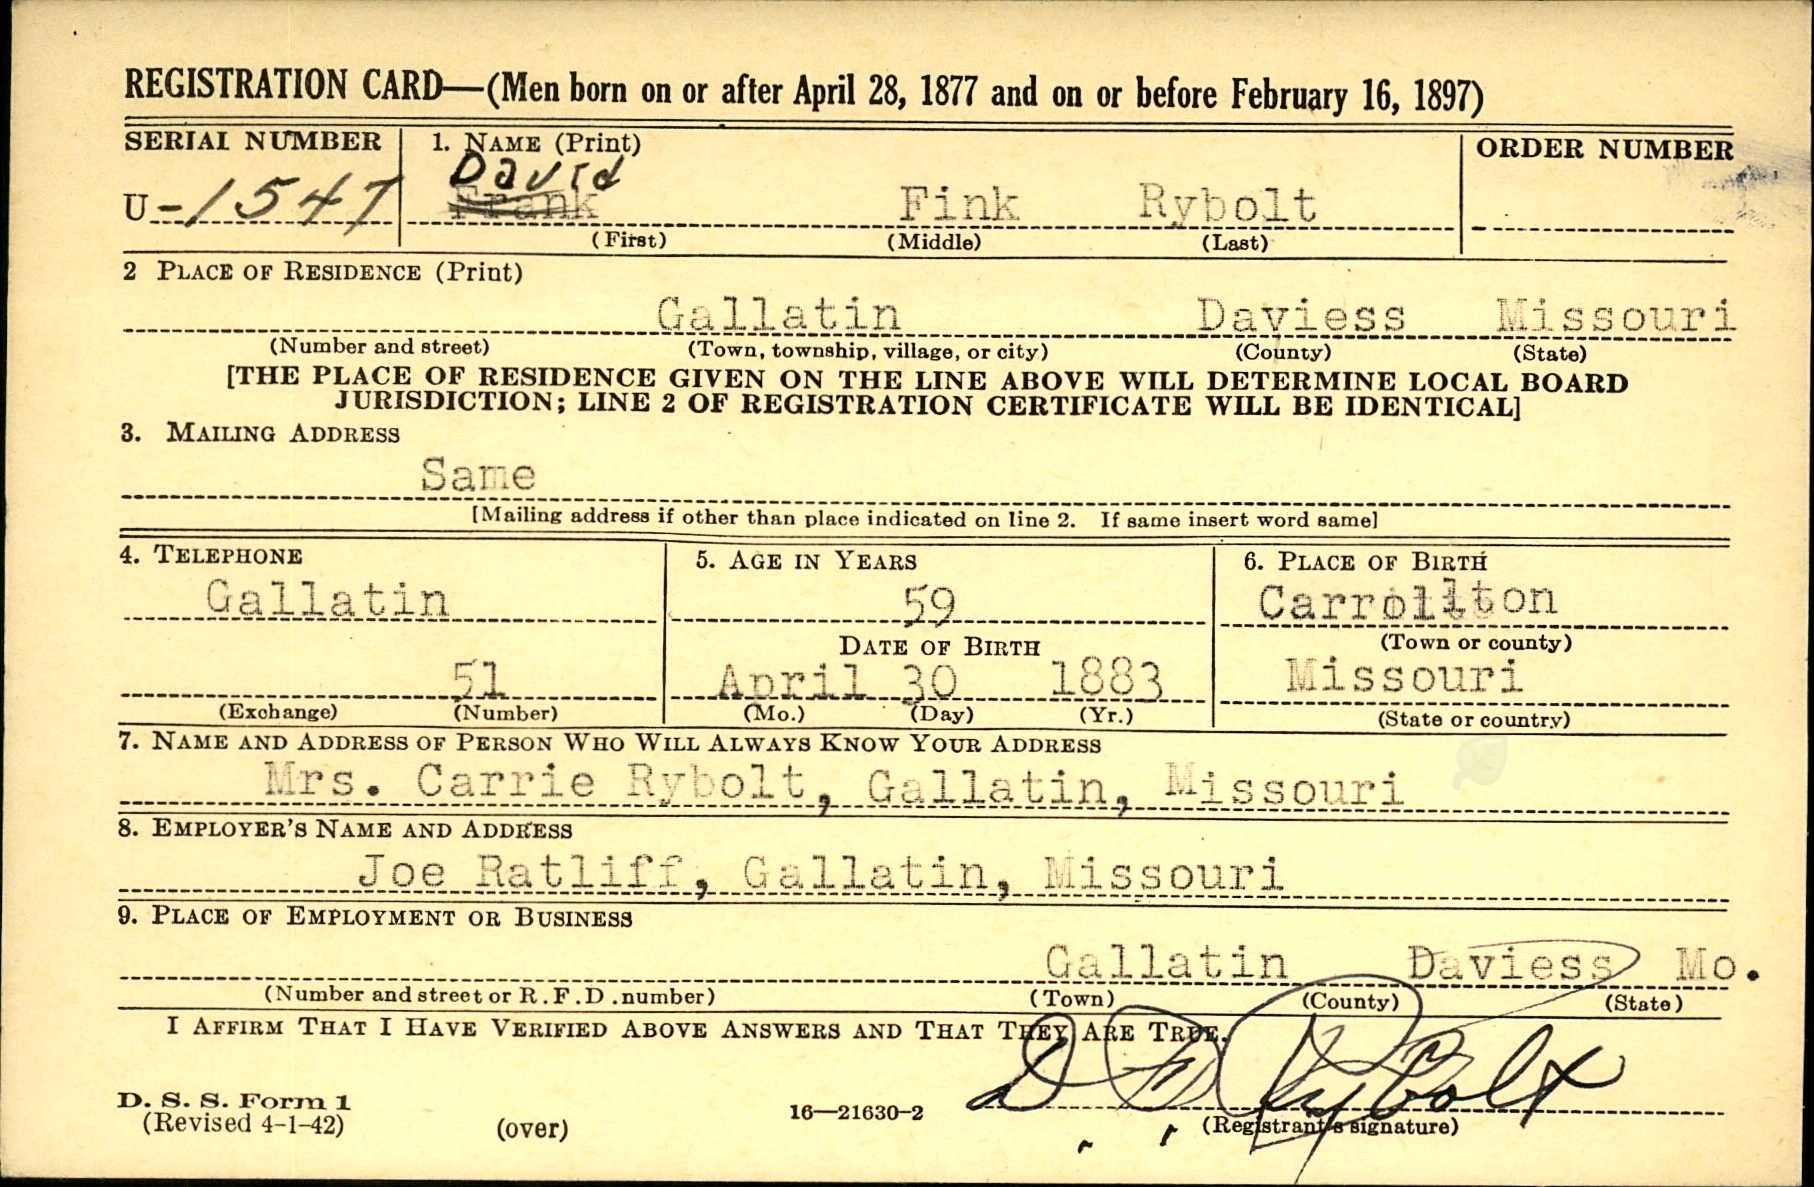 REGISTRATION CARD—(Men born on or after April 28, 1877 and on or before February 16, 1897)
SERIAL NUMBER 1. NAME (Print) ORDER NUMBER
David
U-1547 Frank Fink Rybolt
(First) (Middle) (Last)
2 PLACE OF RESIDENCE (Print)
Gallatin Daviess Missouri
(Number and street) (Town, township, village, or city) (County) (State)
[THE PLACE OF RESIDENCE GIVEN ON THE LINE ABOVE WILL DETERMINE LOCAL BOARD
JURISDICTION; LINE 2 OF REGISTRATION CERTIFICATE WILL BE IDENTICAL]
3. MAILING ADDRESS
Same
[Mailing address if other than place indicated on line 2. If same insert word same]
4. TELEPHONE 5. AGE IN YEARS 6. PLACE OF BIRTH
Gallatin 59 Carrollton
DATE OF BIRTH (Town or county)
51 April 30 1883 Missouri
(Exchange) (Number) (Mo.) (Day) (Yr.) (State or country)
7. NAME AND ADDRESS OF PERSON WHO WILL ALWAYS KNOW YOUR ADDRESS
Mrs. Carrie Rybolt, Gallatin, Missouri
8. EMPLOYER'S NAME AND ADDRESS
Joe Ratliff, Gallatin, Missouri
9. PLACE OF EMPLOYMENT OR BUSINESS
Gallatin Daviess Mo.
(Number and street or R.F.D. number) (Town) (County) (State)
I AFFIRM THAT I HAVE VERIFIED ABOVE ANSWERS AND THAT THEY ARE TRUE.
D F Rybolt
D. S. S. Form 1
(Revised 4-1-42) (over) 16—21630-2 (Registrant's signature)